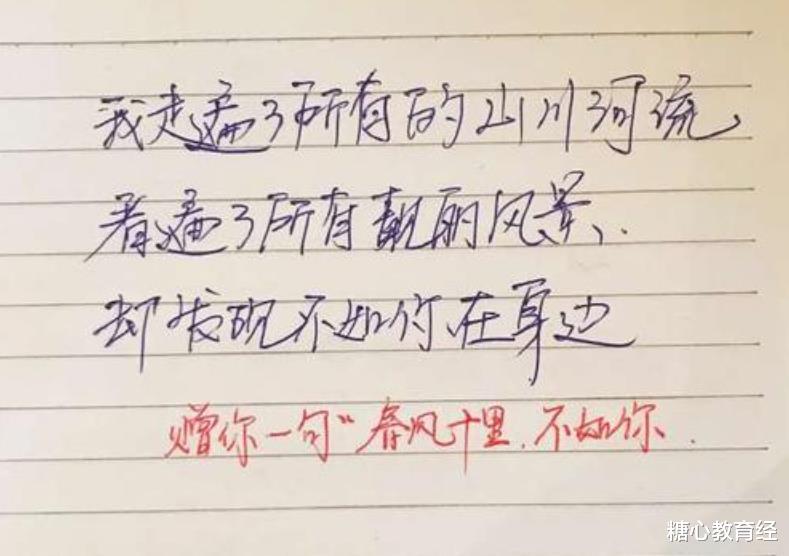 我走遍了所有的山川河流,
看遍了所有靓丽风景,
却发现不如你在身边
赠你一句“春风十里,不如你.
糖心教育经